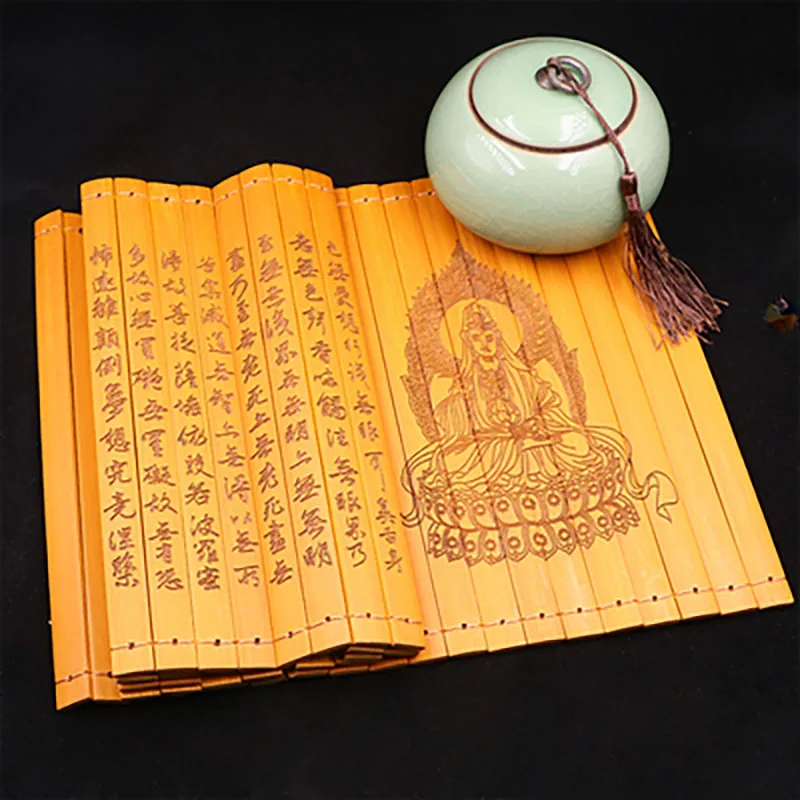 色無受想行識無眼耳鼻舌身
意無色聲香味觸法無眼界乃
至無意識界無無明亦無無明
盡乃至無老死亦無老死盡無
苦集滅道無智亦無得以無所
得故菩提薩埵依般若波羅蜜
多故心無罣礙無罣礙故無有恐
怖遠離顛倒夢想究竟涅槃